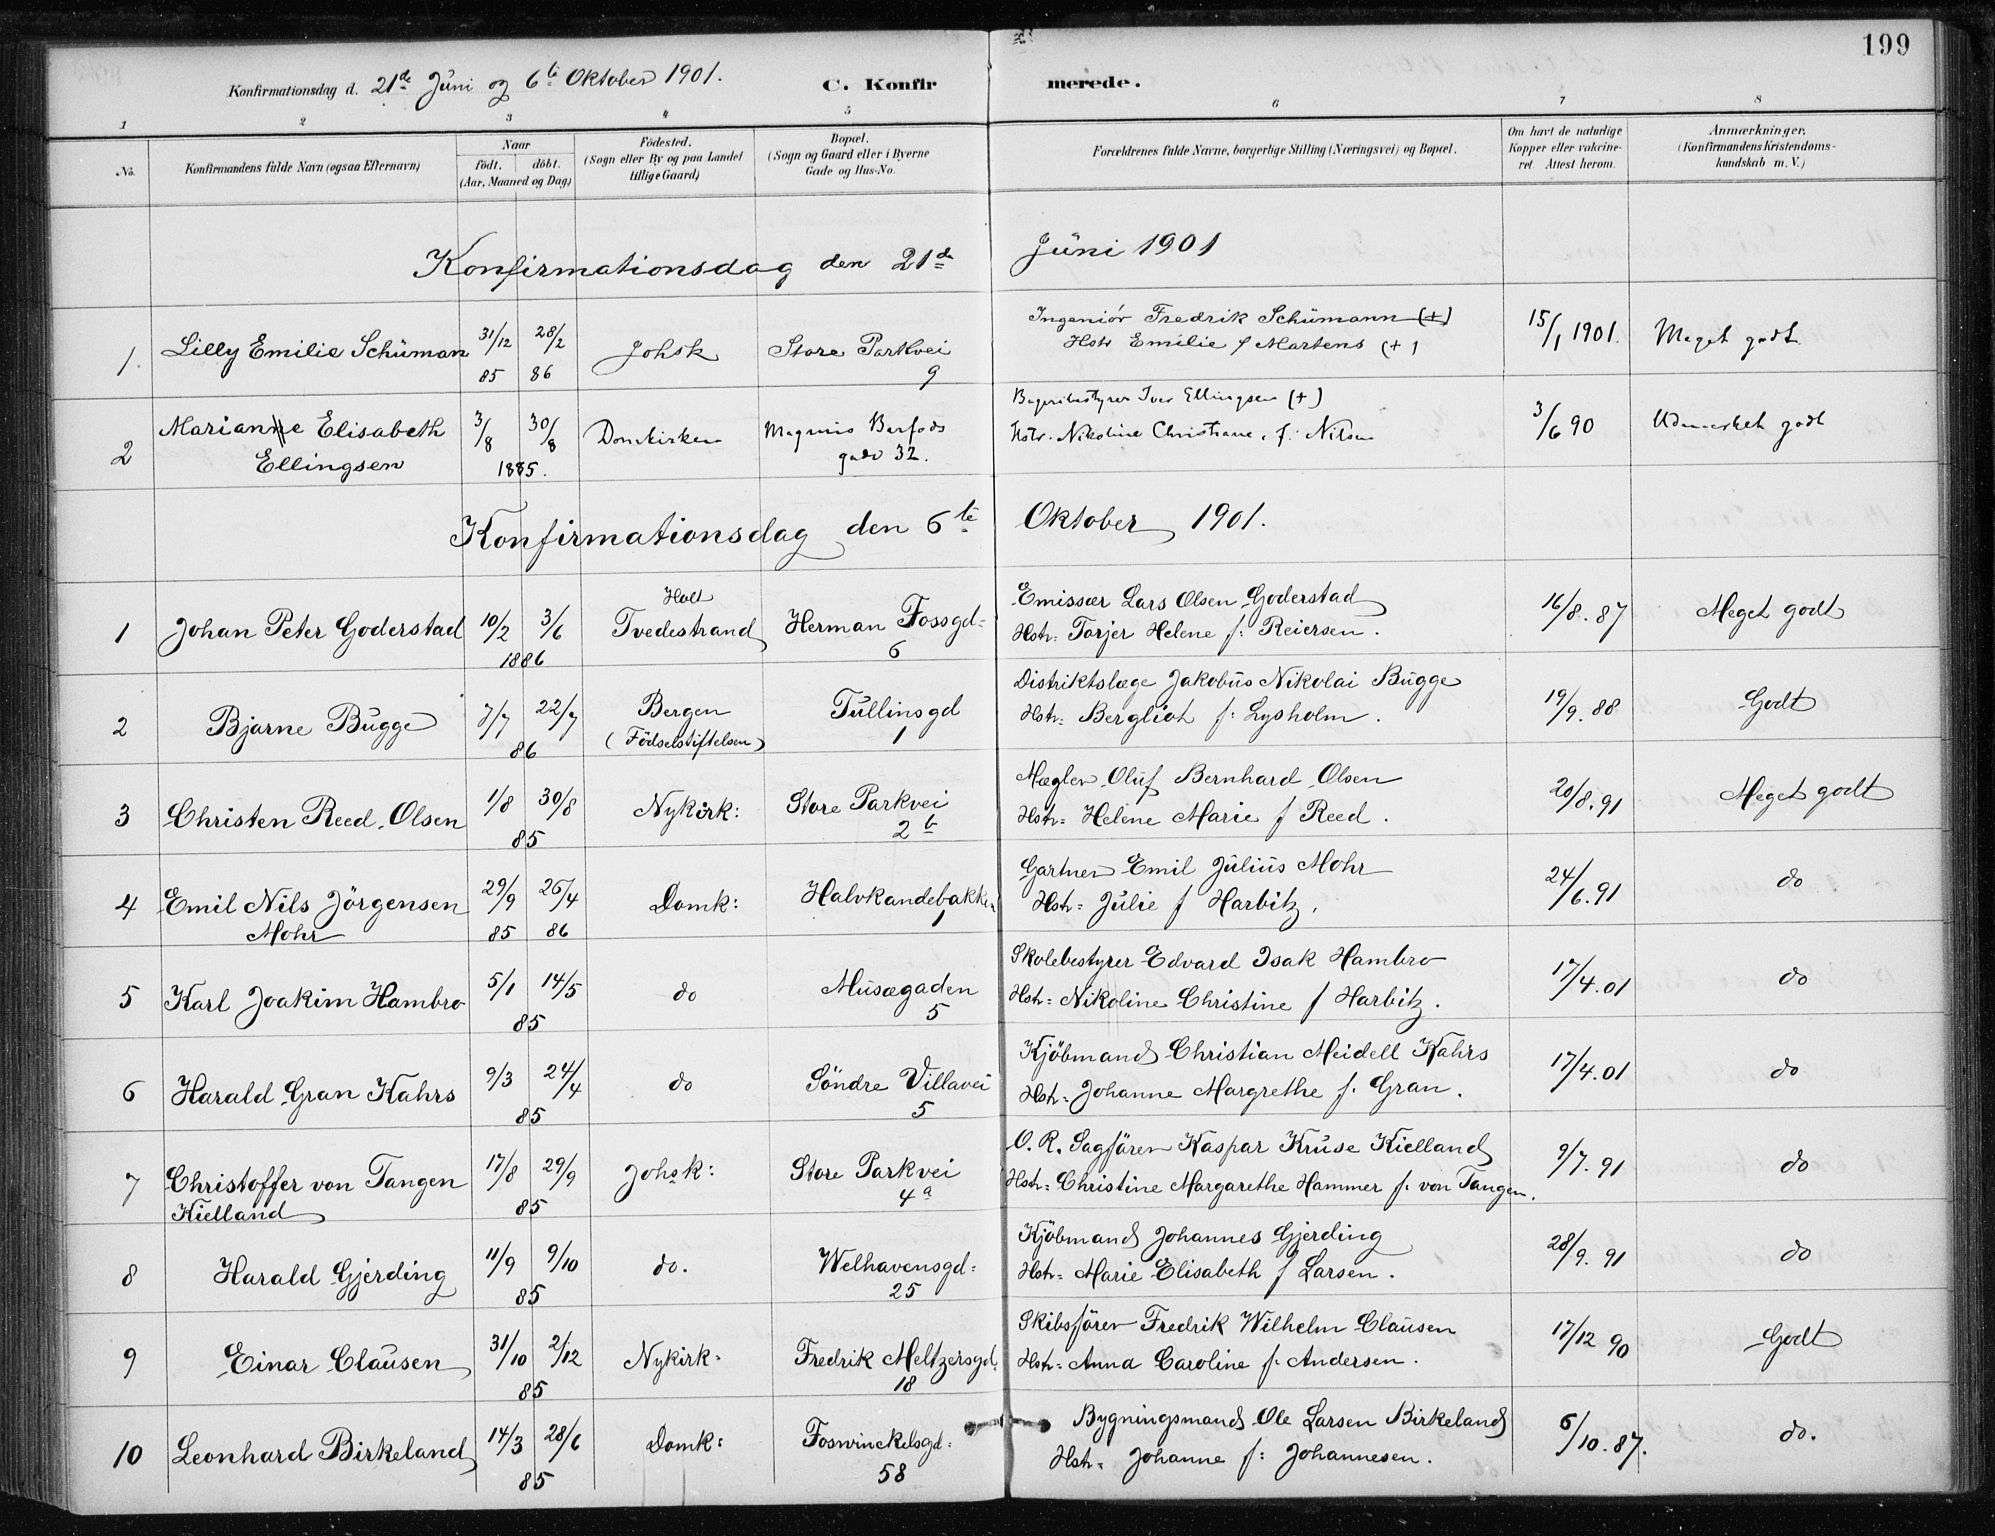 199
Konfirmationsdag d. 21de Juni og 6te Oktober 1901. C. Konfirmerede.
1 2 3 4 5 6 7 8
No. Konfirmandens fulde Navn (ogsaa Efternavn) Naar født. døbt. (Aar, Maaned og Dag) Fødested. (Sogn eller By og paa Landet tillige Gaard) Bopæl. (Sogn og Gaard eller i Byerne Gade og Hus-No. Forældrenes fulde Navne, borgerlige Stilling (Næringsvei) og Bopæl. Om havt de naturlige Kopper eller vakcineret. Attest herom. Anmærkninger. (Konfirmandens Kristendomskundskab m. V.)
Konfirmationsdag den 21de Juni 1901
1. Lilly Emilie Schüman 31/12 85 28/2 86 Johsk Store Parkvei 9 Ingeniør Fredrik Schümann (+) Hstr Emilie f Martens (+) 15/1 1901. Meget godt
2 Marianne Elisabeth Ellingsen 3/8 30/8 1885. Domkirken Magnus Barfods gade 32. Bageribestyrer Iver Ellingsen (+) Hstr. Nikoline Christiane, f. Nilsen 3/6 90 Udmerket godt
Konfirmationsdag den 6te Oktober 1901.
1 Johan Peter Goderstad 10/2 3/6 1886 Holt Tvedestrand Herman Fossgd- 6 Emissær Lars Olsen Goderstad Hstr= Torjer Helene f: Reiersen. 16/8.87 Meget godt
2 Bjarne Bugge 7/7 22/7 86 Bergen (Födselsstiftelsen) Tullinsgd 1 Distriktslæge Jakobus Nikolai Bugge Hstr= Bergliot f: Lysholm. 19/9.88 Godt
3 Christen Reed-Olsen 1/8 30/8 85 Nykirk: Store Parkvei 2b Mægler Oluf Bernhard Olsen Hstr= Helene Marie f Reed. 20/8.91 Meget godt
4 Emil Nils Jörgensen Mohr 29/9 85 26/4 86 Domk: Halvkandebakken 1 Gartner Emil Julius Mohr Hstr= Julie f Harbitz. 24/6.91 do
5 Karl Joakim Hambro 5/1 14/5 85 do Musægaden 5 Skolebestyrer Edvard Isak Hambro Hstr= Nikoline Christine f Harbitz. 17/4.01 do
6 Harald Gran Kahrs 9/3 24/4 85 do Söndre Villavei 5 Kjöbmand Christian Meidell Kahrs Hstr= Johanne Margrethe f. Gran. 17/4.01 do
7 Christoffer von Tangen Kielland 17/8 29/9 85 Johsk: Store Parkvei 4a O. R. Sagförer Kaspar Kruse Kielland Hstr= Christine Margarethe Hammer f. von Tangen. 9/7.91 do
8 Harald Gjerding 11/9 9/10 85 do. Welhavensgd: 25 Kjöbmand Johannes Gjerding Hstr= Marie Elisabeth f Larsen. 28/9.91 do
9 Einar Clausen 31/10 2/12 85 Nykirk: Fredrik Meltzersgd. 18 Skibsförer Fredrik Wilhelm Clausen Hstr= Anna Caroline f. Andersen. 17/12 90 Godt
10 Leonhard Birkeland 14/3 28/6 85 Domk: Foswinckelsgd: 58 Bygningsmand Ole Larsen Birkeland Hstr= Johanne f: Johannesen. 6/10.87. do.